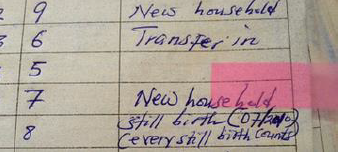 9 New household
6 Transfer in
5
7 New household
still birth
8 (every still birth counts